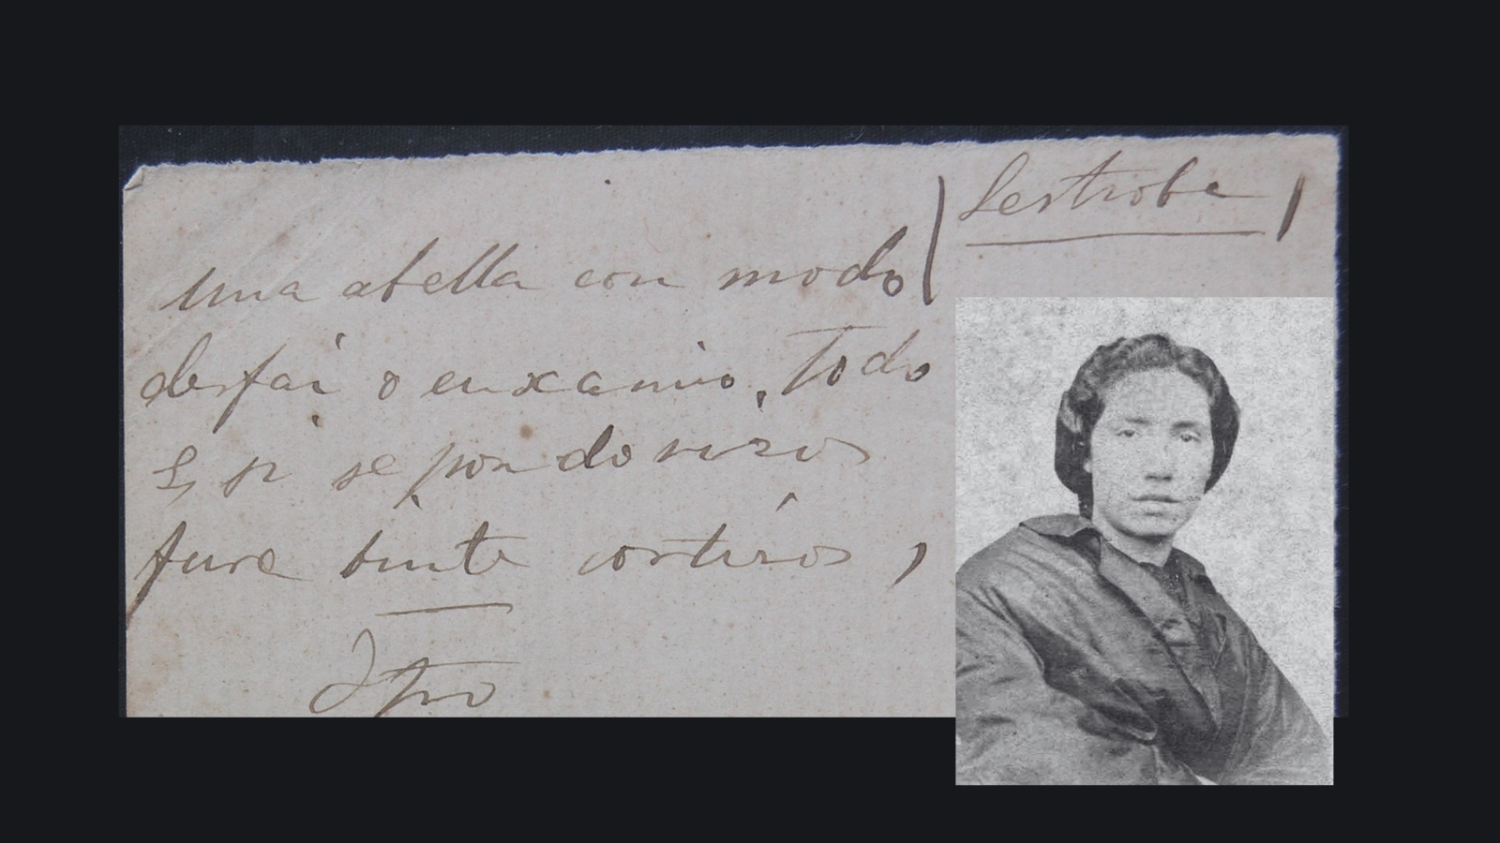 Lestrobe
una abella con modo
desfai o enxamio. Todo
E, si se pon do revés
fura binte cortizos,